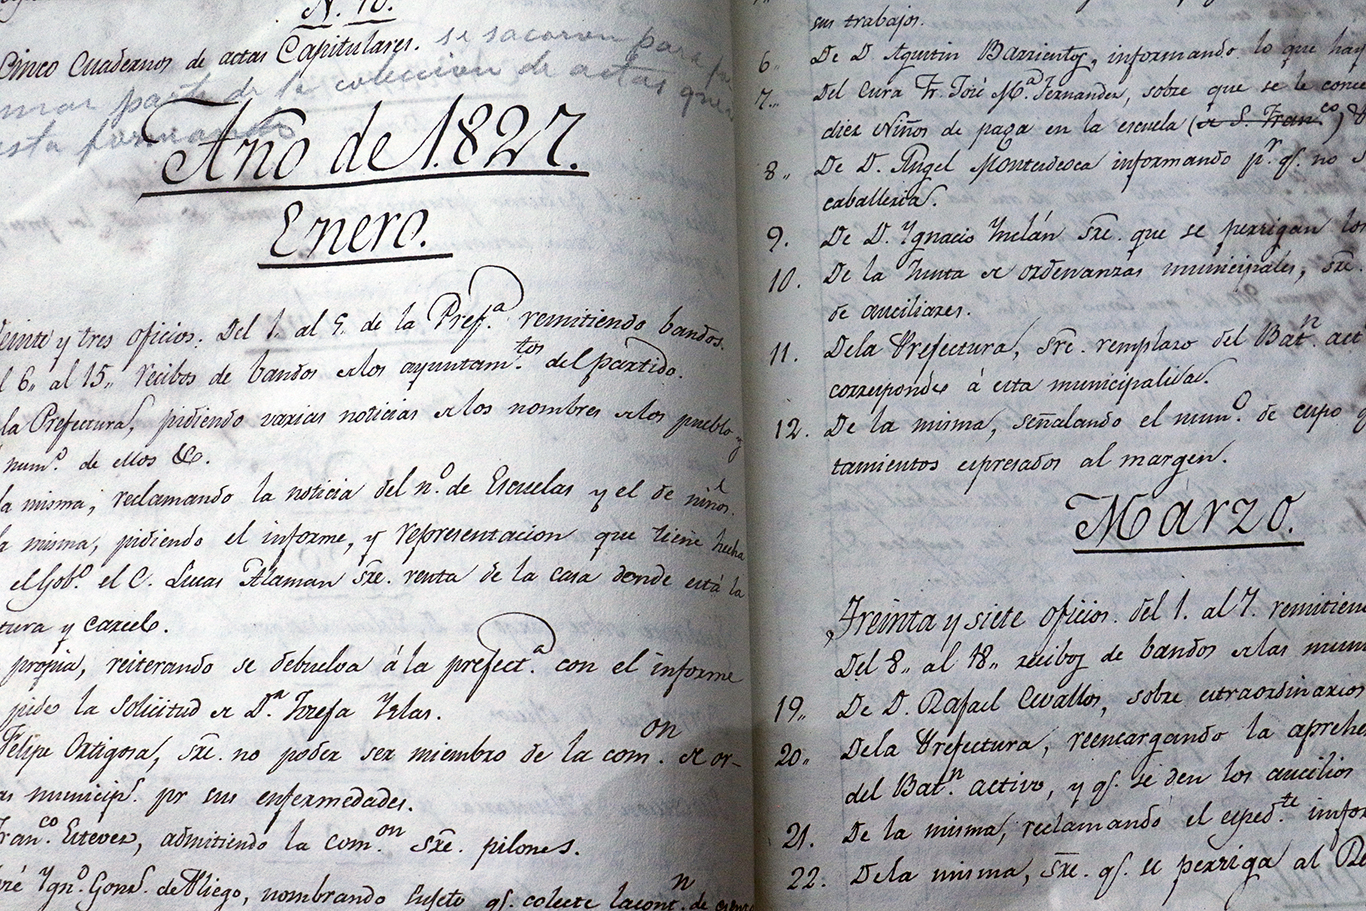 N. 10.
Cinco Cuadernos de actas Capitulares. se sacaron para
parte de la coleccion de actas que
esta formando
Año de 1.827.
Enero.
veinte y tres oficios. Del 1. al 5. de la Pref.ª remitiendo bandos.
l 6,, al 15,, recibos de bandos de los ayuntam.tos del partido.
la Prefectura, pidiendo varias noticias de los nombres de los pueblo y
num.º de ellos &c.
la misma, reclamando la noticia del n.º de Escuelas y el de niños.
a misma, pidiendo el informe, y representacion que tiene hecha
el Gob.º el C. Lucas Alaman sre. renta de la casa donde está la
tura y carcel.
propia, reiterando se debuelva á la prefect.ª con el informe
pide la solicitud de D.ª Josefa Yslas.
Felipe Ortigosa, sre. no poder ser miembro de la com.on de or-
as municip.s pr sus enfermedades.
Fran.co Estevez, admitiendo la com.on sre. pilones.
Ygn.º Gonz. de Pliego, nombrando sujeto q.e colecte la cont.n de
sus trabajos.
6,, De D. Agustin Barrientos, informando lo que hay
7,, Del Cura Fr. José M.ª Fernandez, sobre que se le conce
diez Niños de paga en la escuela (de S. Fran.co)
8,, De D. Angel Montesdeoca informando p.r q.e no
caballeria.
9. De D. Ygnacio Ynclán sre. que se persigan los
10. De la Junta de ordenanzas municipales, sre.
de auciliares.
11. De la Prefectura, sre. remplazo del Bat.n act
corresponde á esta municipalida.
12. De la misma, señalando el num.º de cupo
tamientos espresados al margen.
Marzo.
Treinta y siete oficios. del 1. al 7. remitien
Del 8,, al 18,, recibos de bandos de las mun
19,, De D. Rafael Cevallos, sobre estraordinarios
20,, De la Prefectura, reencargando la aprehe
del Bat.n activo, y q.e se den los aucilios
21. De la misma, reclamando el esped.te infor
22. De la misma, sre. q.e se persiga al